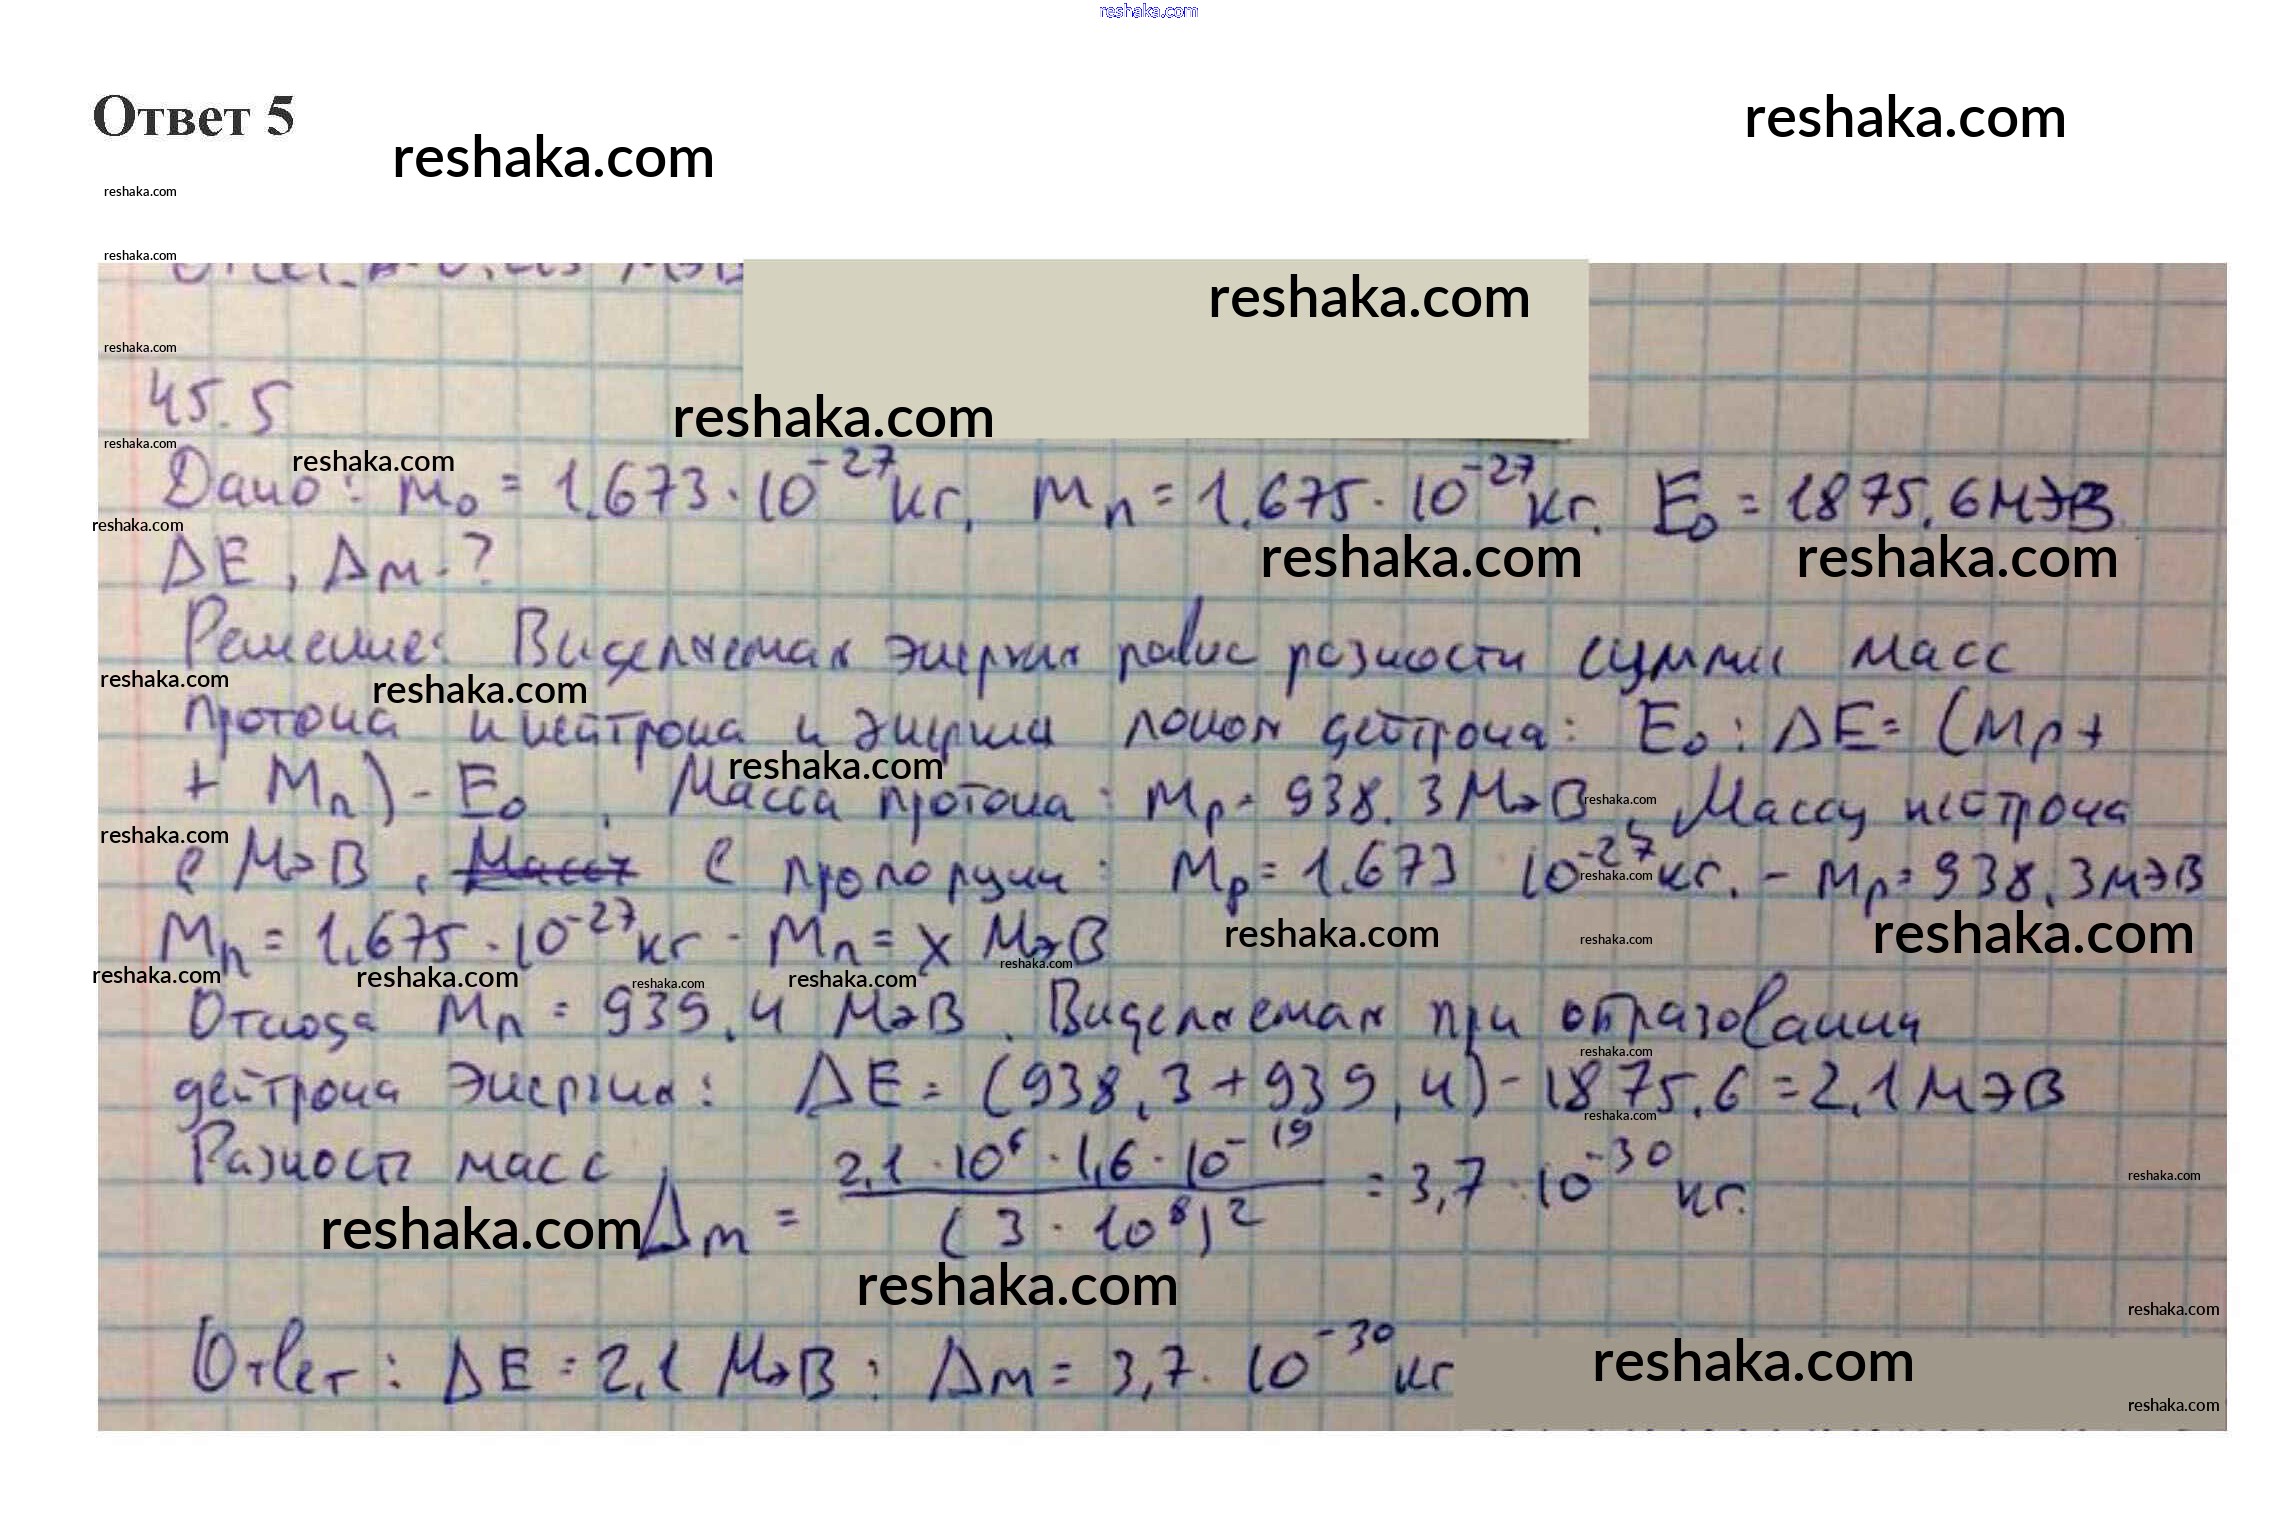 reshaka.com
Ответ 5
reshaka.com
reshaka.com
reshaka.com
reshaka.com
reshaka.com
reshaka.com
45.5
reshaka.com
reshaka.com
reshaka.com
Дано: m₀ = 1.673 · 10⁻²⁷ кг, mₙ = 1.675 · 10⁻²⁷ кг. E₀ = 1875.6 МэВ.
reshaka.com
ΔE, Δm - ?
reshaka.com
reshaka.com
Решение: Виделяемая энергия равна разности сумми масс
reshaka.com
reshaka.com
протона и нейтрона и энергии покоя дейтрона: E₀: ΔE = (Mp +
reshaka.com
+ Mn) - E₀. Масса протона: Mp = 938.3 МэВ. Массу нейтрона
reshaka.com
reshaka.com
с МэВ. С пропорции: Mp = 1.673 10⁻²⁷ кг. - Mp = 938.3 МэВ
reshaka.com
Mn = 1.675 · 10⁻²⁷ кг - Mn = x МэВ
reshaka.com
reshaka.com
reshaka.com
reshaka.com
reshaka.com
reshaka.com
reshaka.com
reshaka.com
Отсюда Mn = 939.4 МэВ. Виделяемая при образовании
reshaka.com
дейтрона энергия: ΔE = (938,3 + 939,4) - 1875.6 = 2,1 МэВ
reshaka.com
Разность масс Δm = 2,1 · 10⁶ · 1,6 · 10⁻¹⁹ / (3 · 10⁸)² = 3,7 · 10⁻³⁰ кг.
reshaka.com
reshaka.com
reshaka.com
reshaka.com
Ответ: ΔE = 2,1 МэВ; Δm = 3,7 · 10⁻³⁰ кг
reshaka.com
reshaka.com